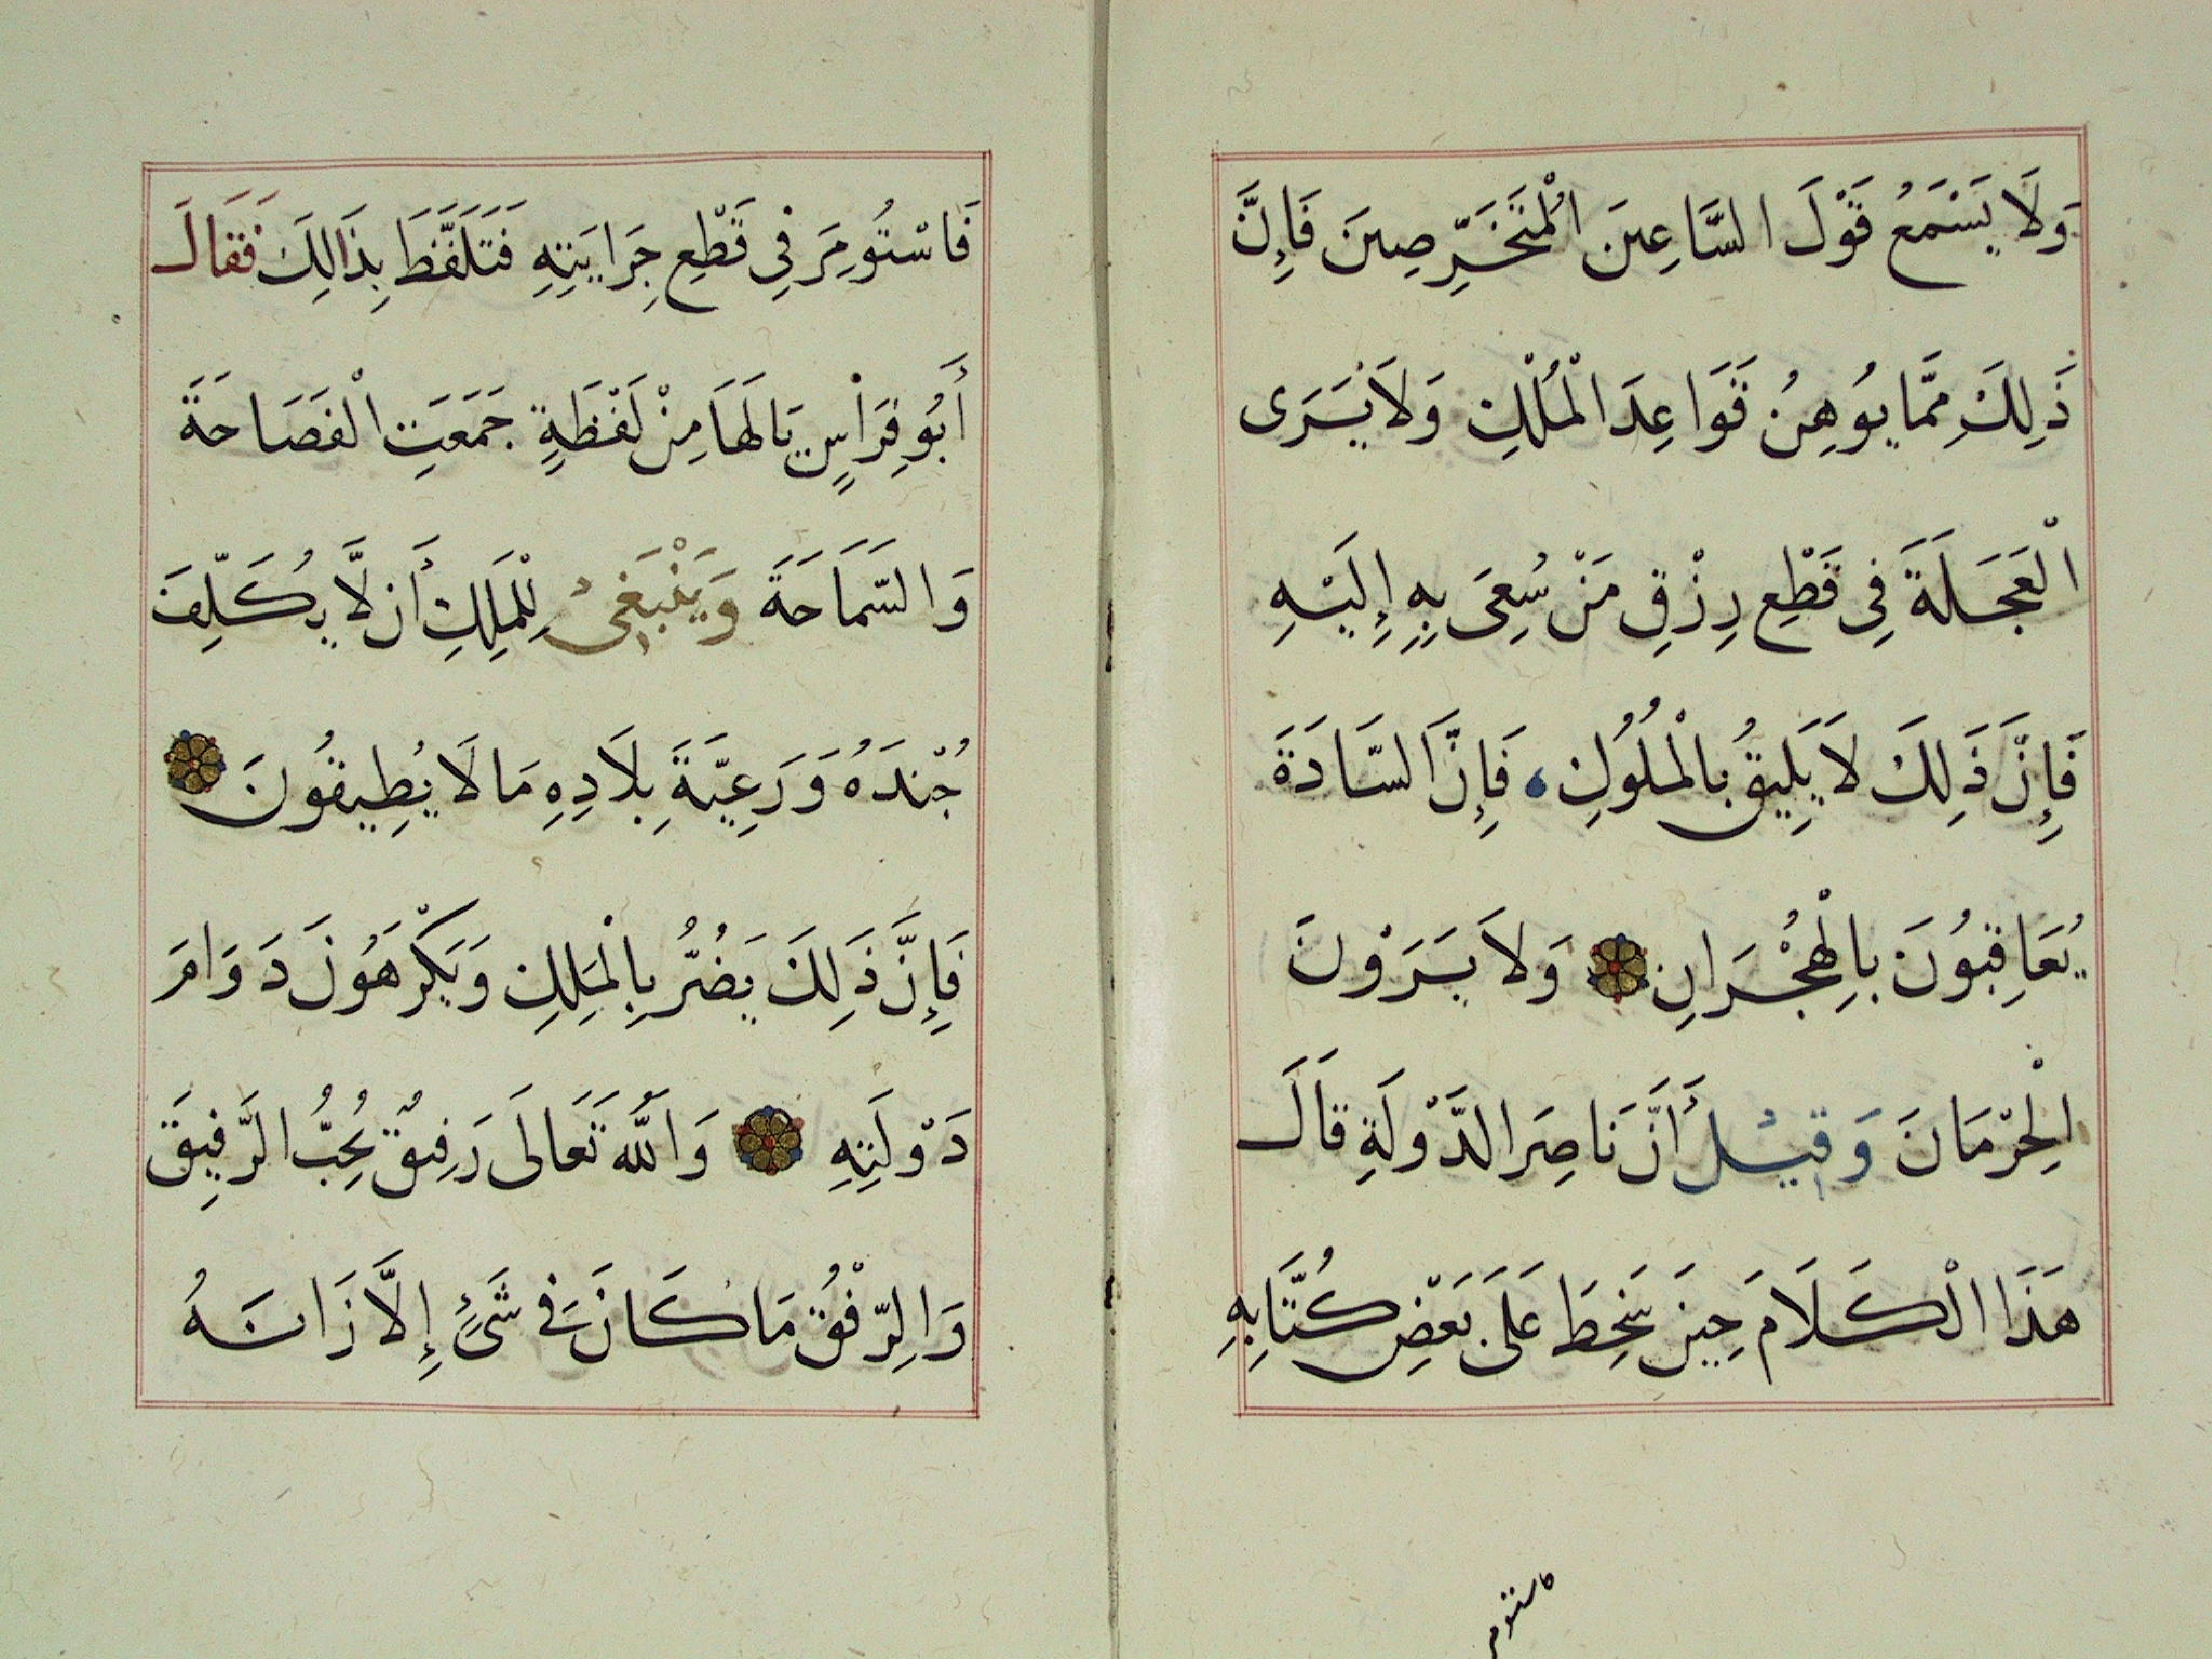 وَلَا يَسْمَعُ قَوْلَ السَّاعِينَ الْمُتَخَرِّصِينَ فَإِنَّ
ذَلِكَ مِمَّا يُوهِنُ قَوَاعِدَ الْمُلْكِ وَلَا يَرَى
الْعَجَلَةَ فِي قَطْعِ رِزْقِ مَنْ سُعِيَ بِهِ إِلَيْهِ
فَإِنَّ ذَلِكَ لَا يَلِيقُ بِالْمُلُوكِ، فَإِنَّ السَّادَةَ
يُعَاقِبُونَ بِالْهِجْرَانِ وَلَا يَرَوْنَ
الْحِرْمَانَ وَقِيْلَ أَنَّ نَاصِرَ الدَّوْلَةِ قَالَ
هَذَا الْكَلَامَ حِينَ سَخِطَ عَلَى بَعْضِ كُتَّابِهِ
فاستومر
فَاسْتُومِرَ فِي قَطْعِ جِرَايَتِهِ فَتَلَفَّظَ بِذَالِكَ فَقَالَ
أَبُو فِرَاسٍ يَا لَهَا مِنْ لَفْظَةٍ جَمَعَتِ الْفَصَاحَةَ
وَالسَّمَاحَةَ وَيَنْبَغِيْ لِلْمَلِكِ أَن لَّا يُكَلِّفَ
جُنْدَهُ وَرَعِيَّةَ بِلَادِهِ مَا لَا يُطِيقُونَ
فَإِنَّ ذَلِكَ يَضُرُّ بِالْمَلِكِ وَيَكْرَهُونَ دَوَامَ
دَوْلَتِهِ وَاللَّهُ تَعَالَى رَفِيقٌ يُحِبُّ الرَّفِيقَ
وَالرِّفْقُ مَا كَانَ فِي شَيْءٍ إِلَّا زَانَهُ